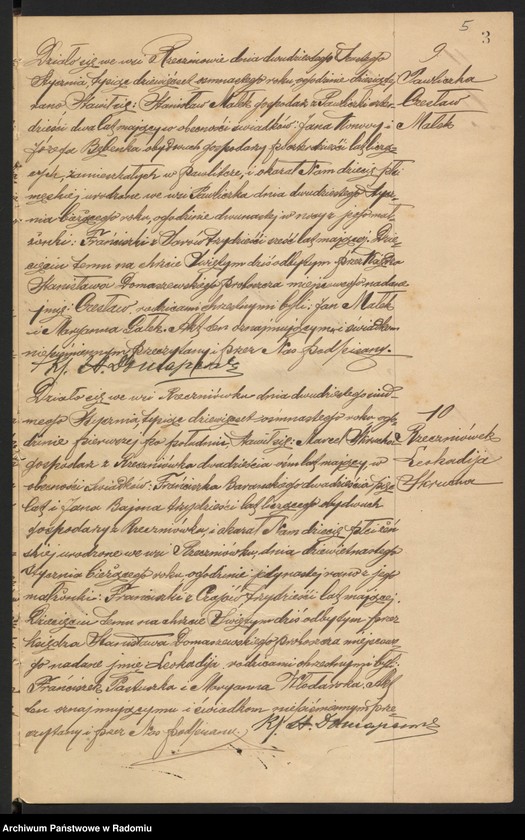 5
3
9
Pawliczka
Czesław
Małek
Działo się we wsi Rzeczniowie dnia dwudziestego
Stycznia, tysiąc dziewięćset osmnastego roku, o godzinie dziesiątej
rano. Stawił się: Stanisław Małek gospodarz z Pawliczki
dzieści dwa lat mający w obecności świadków: Jana i
Józefa Bębenka obydwuch gospodarzy po lat liczą-
cych, zamieszkałych w Pawliczce, i okazał Nam dziecię płci
męskiej urodzone we wsi Pawliczka dnia dwudziestego Stycz-
nia bieżącego roku, o godzinie dwunastej w nocy z jego mał-
żonki: Franciszki z trzydzieści sześć lat mającej. Dzie-
cięciu temu na chrzcie Świętym dziś odbytym przez Księdza
Stanisława Domaszewskiego Proboszcza miejscowego nadane
imię: Czesław, rodzicami chrzestnymi byli: Jan Małek
i Maryanna Galek. Akt ten oznajmującym i świadkom
niepiśmiennym przeczytany i przez Nas podpisany.
Ks. St. Domaszewski
10
Rzeczniówek
Leokadija
Skrucha
Działo się we wsi Rzeczniówku dnia dwudziestego siód-
mego Stycznia, tysiąc dziewięćset osmnastego roku o go-
dzinie pierwszej po południu, stawił się: Marcel
gospodarz z Rzeczniówka dwadzieścia ośm lat mający w
obecności świadków: Franciszka Baranskiego dwadzieścia pięć
lat i Jana Bajona trzydzieści lat liczącego obydwuch
gospodarzy z Rzeczniówka, i okazał Nam dziecię płci żeń-
skiej urodzone we wsi Rzeczniówku, dnia dziewiętnastego
Stycznia bieżącego roku, o godzinie jedynastej rano z jego
małżonki: Franciszki z trzydzieści lat mającej.
Dziecięciu temu na chrzcie Świętym dziś odbytym przez
Księdza Stanisława Domaszewskiego Proboszcza miejscowe-
go nadane imię Leokadija, rodzicami chrzestnymi byli:
Franciszek Pastuszka i Maryanna Włodarska. Akt
ten oznajmującemu i świadkom niepiśmiennym prze-
czytany i przez Nas podpisany. Ks. St. Domaszewski
Archiwum Państwowe w Radomiu